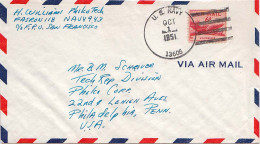 H. Williams Philco Tech
FAIRON 118 NAVY 943
c/o F.P.O. San Francisco
U.S. NAVY
OCT
1951
13605
VIA AIR MAIL
Mr. B. M. Schrauer
Tech Rep. Division
Philco Corp.
22nd & Lehigh Aves.
Philadelphia, Penn.
U.S.A.